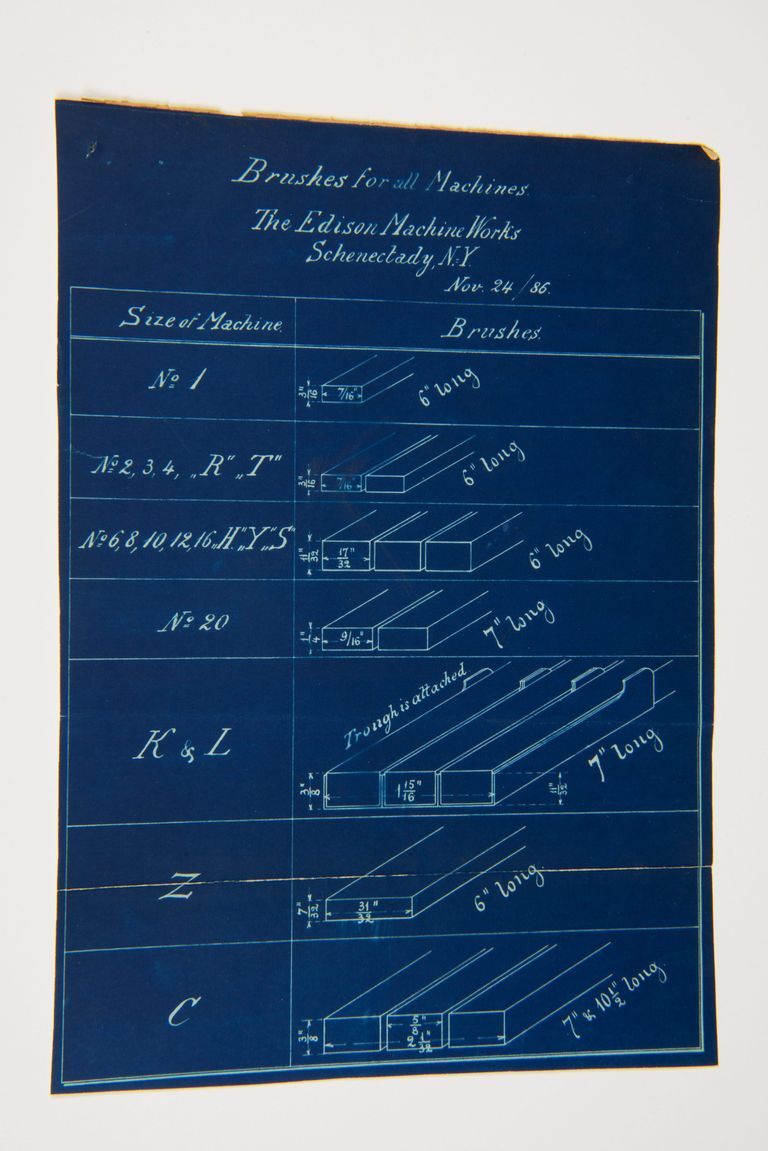 Brushes for all Machines.
The Edison Machine Works
Schenectady, N.Y.
Nov. 24/86.
Size of Machine. Brushes.
No 1 3/16" 7/16" 6" long
No 2, 3, 4, „R" „T" 3/16" 7/16" 6" long
No 6, 8, 10, 12, 16, „H" „Y" „S" 11/32" 17/32" 6" long
No 20 1/4" 9/16" 7" long
K & L Trough is attached 3/8" 1 15/16" 11/32" 7" long
Z 7/32" 31/32" 6" long.
C 3/8" 5/8" 2 1/32" 7" & 10 1/2" long.